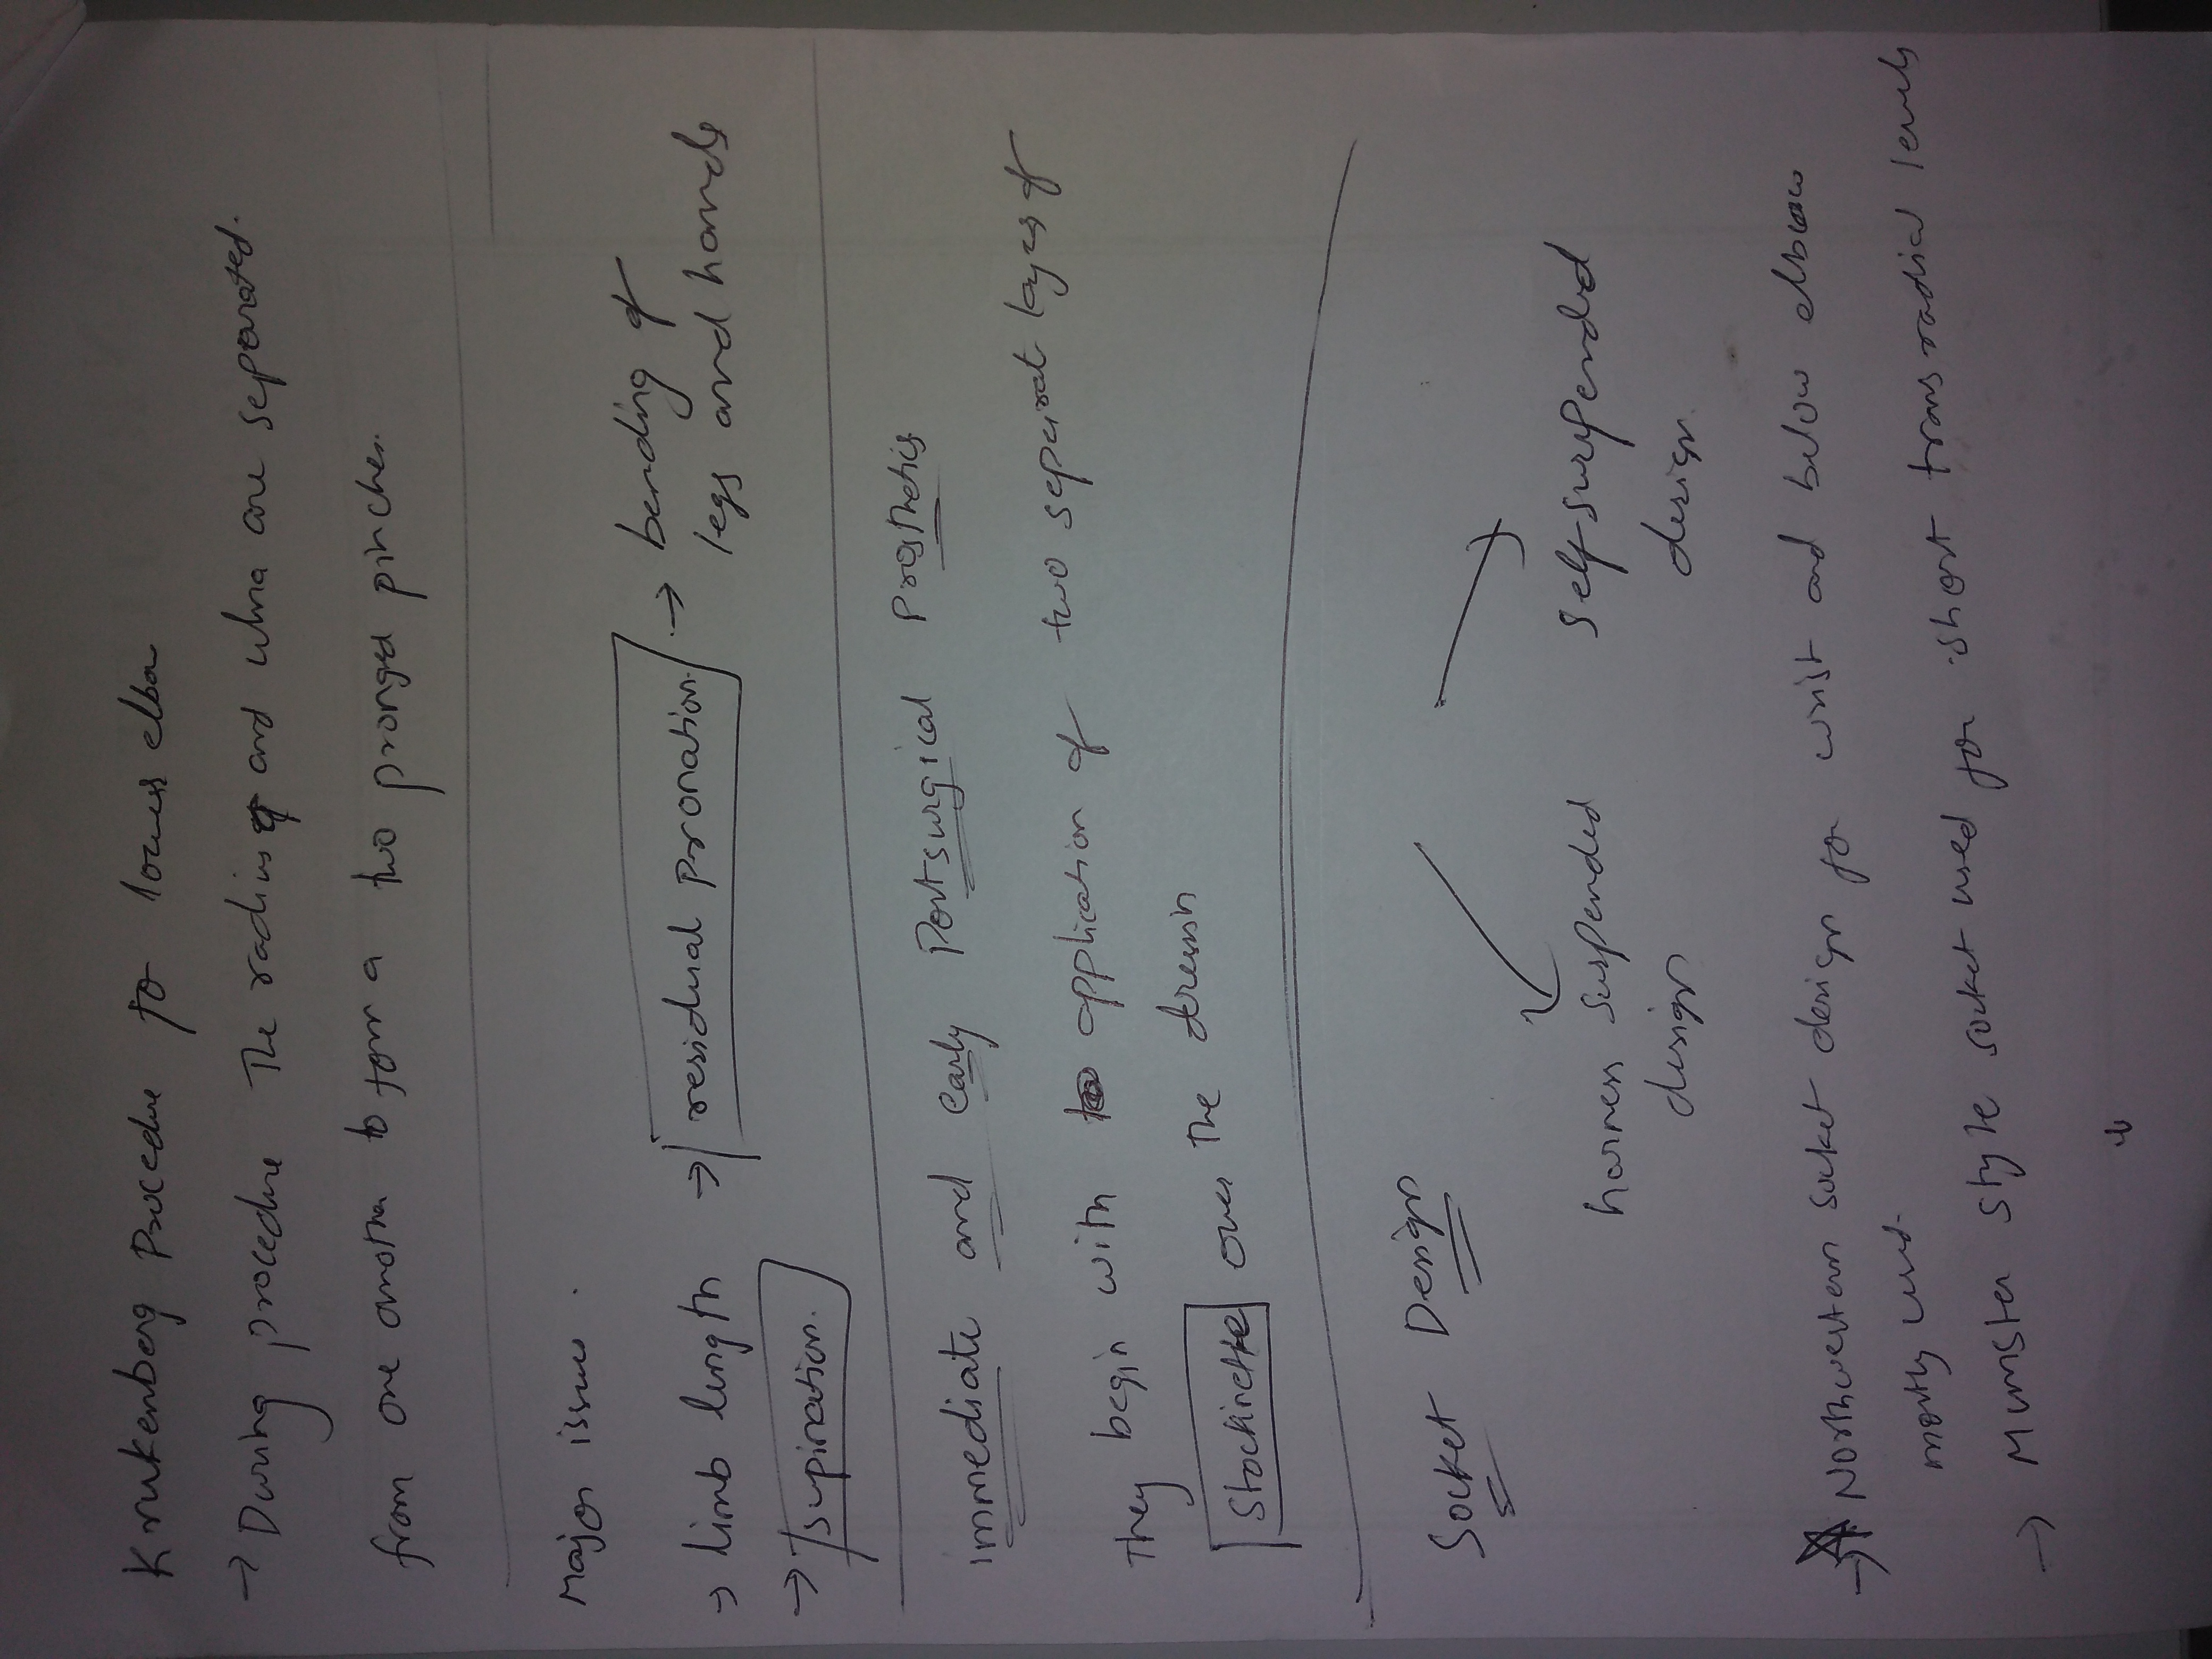 Krukenberg Procedure for lower elbow
→ During procedure The radius and ulna are separated.
from one another to form a two pronged pincher.
Major issues.
→ limb length → residual pronation. → bending of
legs and hands
→ supination.
immediate and early Postsurgical Prosthetis
They begin with application of two seperat layers of
Stockinette over the dressin
Socket Design
harness suspended
design
self suspended
design.
→ Northwestern socket design for wrist and below elbow
mostly used.
→ Munster style socket used for short trans radial levels